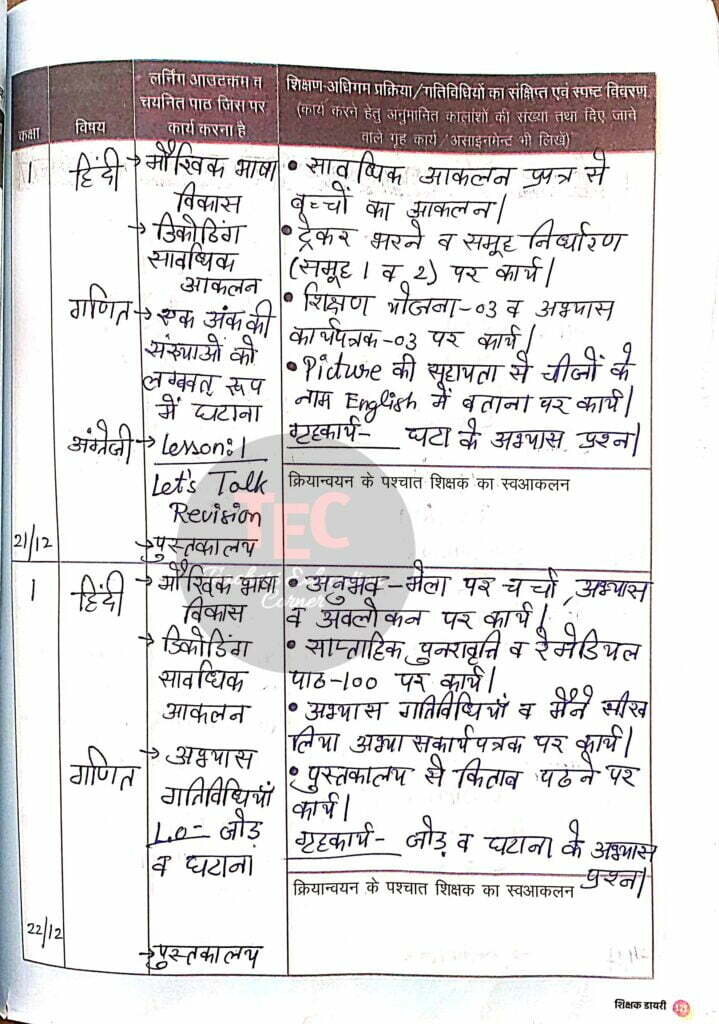 कक्षा
विषय
लर्निंग आउटकम व
चयनित पाठ जिस पर
कार्य करना है
शिक्षण-अधिगम प्रक्रिया/गतिविधियों का संक्षिप्त एवं स्पष्ट विवरण.
(कार्य करने हेतु अनुमानित कालांशों की संख्या तथा दिए जाने
वाले गृह कार्य/असाइनमेन्ट भी लिखें)
1
हिंदी
→ मौखिक भाषा
विकास
→ डिकोडिंग
सावधिक
आकलन
गणित
→ एक अंक की
संख्याओं को
लम्बवत् रूप
में घटाना
अंग्रेजी
→ Lesson:1
Let's Talk
Revision
→ पुस्तकालय
21/12
• सावधिक आकलन प्रपत्र से
बच्चों का आकलन।
• ट्रेकर भरने व समूह निर्धारण
(समूह 1 व 2) पर कार्य।
• शिक्षण योजना-03 व अभ्यास
कार्यपत्रक-03 पर कार्य।
• Picture की सहायता से चीजों के
नाम English में बताना पर कार्य।
गृहकार्य- घटा के अभ्यास प्रश्न।
क्रियान्वयन के पश्चात शिक्षक का स्वआकलन
TEC
Corner
1
हिंदी
→ मौखिक भाषा
विकास
→ डिकोडिंग
सावधिक
आकलन
गणित
→ अभ्यास
गतिविधियाँ
L.O- जोड़
व घटाना
→ पुस्तकालय
22/12
• अनुभव-मेला पर चर्चा, अभ्यास
व अवलोकन पर कार्य।
• साप्ताहिक पुनरावृत्ति व रेमेडियल
पाठ-100 पर कार्य।
• अभ्यास गतिविधियाँ व मैंने सीख
लिया अभ्यासकार्यपत्रक पर कार्य।
• पुस्तकालय से किताब पढने पर
कार्य।
गृहकार्य- जोड़ व घटाना के अभ्यास
प्रश्न।
क्रियान्वयन के पश्चात शिक्षक का स्वआकलन
शिक्षक डायरी